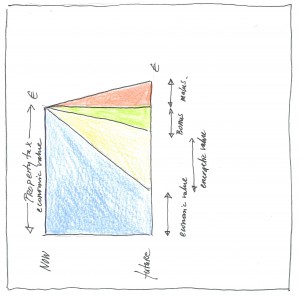 €
€
Property tax
economic value
Bonus malus.
energetic value
economic value
NOW
future